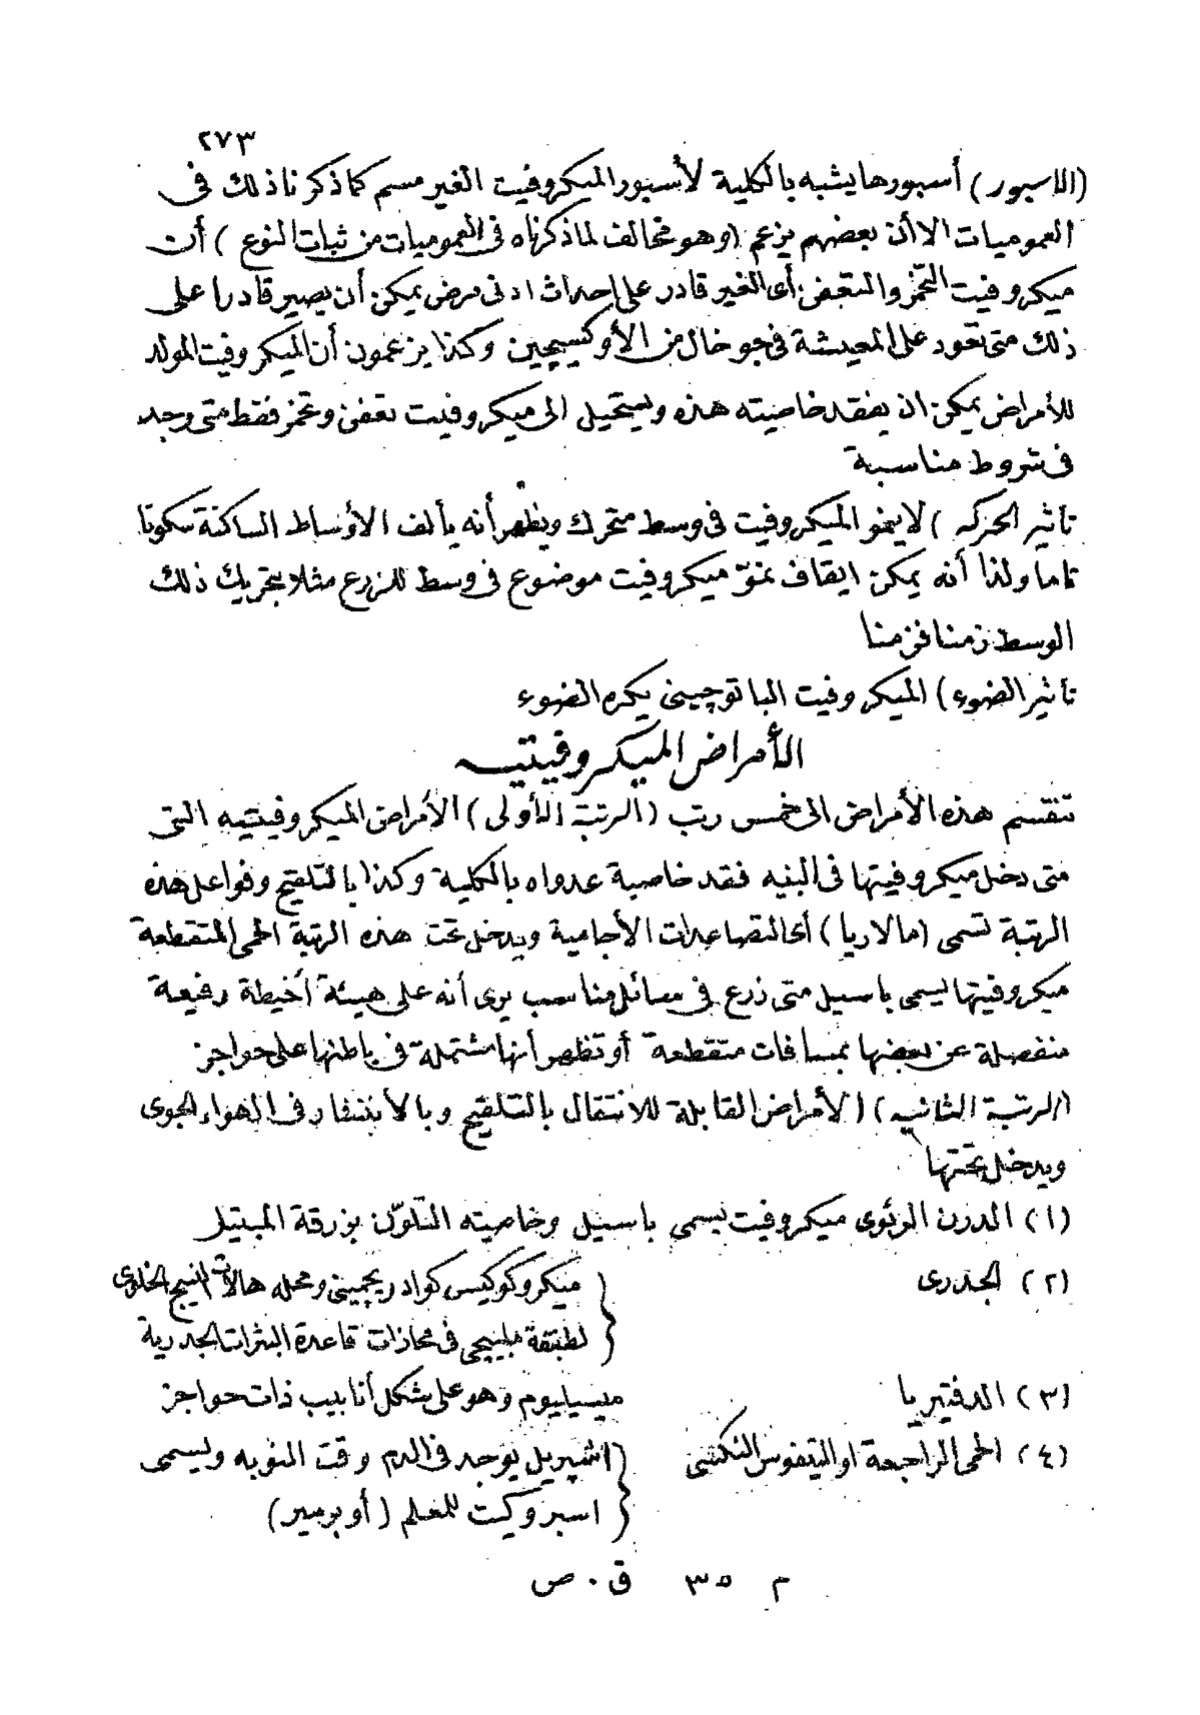 ٢٧٣
(الاسبور) أسبورها يشبه بالكلية لأسبور الميكروفيت الغير مسم كما ذكرنا ذلك فى
العموميات الا أن بعضهم يزعم (وهو مخالف لما ذكرناه فى العموميات من ثبات النوع ) أن
ميكروفيت التخمر والتعفن أى الغير قادر على إحداث ادنى مرض يمكن أن يصير قادرا على
ذلك متى تعود على المعيشة فى جو خال من الأوكسيجين وكذا يزعمون أن الميكروفيت المولد
للأمراض يمكن ان يفقد خاصيته هذه ويستحيل الى ميكروفيت تعفن وتخمر فقط متى وجد
فى شروط مناسبة
تأثير الحركه ) لا ينمو الميكروفيت فى وسط متحرك ويظهر أنه يألف الأوساط الساكنة سكونا
تاما ولذا أنه يمكن ايقاف نموّ ميكروفيت موضوع فى وسط للزرع مثلا بتحريك ذلك
الوسط زمنا فزمنا
تأثير الضوء) الميكروفيت الباتوجينى يكره الضوء
الأمراض الميكروفيتيه
تنقسم هذه الأمراض الى خمس رتب (الرتبة الأولى) الأمراض الميكروفيتيه التى
متى دخل ميكروفيتها فى البنيه فقد خاصية عدواه بالكلية وكذا بالتلقيح وفواعل هذه
الرتبة تسمى (مالاريا) أى التصاعدات الأجامية ويدخل تحت هذه الرتبة الحمى المتقطعة
ميكروفيتها يسمى باسيل متى زرع فى سائل مناسب يرى أنه على هيئة أخيطة رفيعة
منفصلة عن بعضها بمسافات متقطعة أو تظهر أنها مشتملة فى باطنها على حواجز
(الرتبة الثانيه) الأمراض القابلة للانتقال بالتلقيح وبالأنتشار فى الهواء الجوى
ويدخل تحتها
(١) الدرن الرئوى ميكروفيت يسمى باسيل وخاصيته التلوّن بزرقة المبتيل
(٢) الجدرى { ميكروكوكيس كوادريجمينى ومحله هالات النسيج الخلوى
لطبقة ملبيجى فى محاذات قاعدة البثرات الجدرية
(٣) الدفتيريا ميسيليوم وهو على شكل أنابيب ذات حواجز
(٤) الحمى الراجعة او التيفوس النكسى { اشپريل يوجد فى الدم وقت النوبه ويسمى
اسبروكيت للمعلم (أوبرمير)
م ٣٥ ق . ص